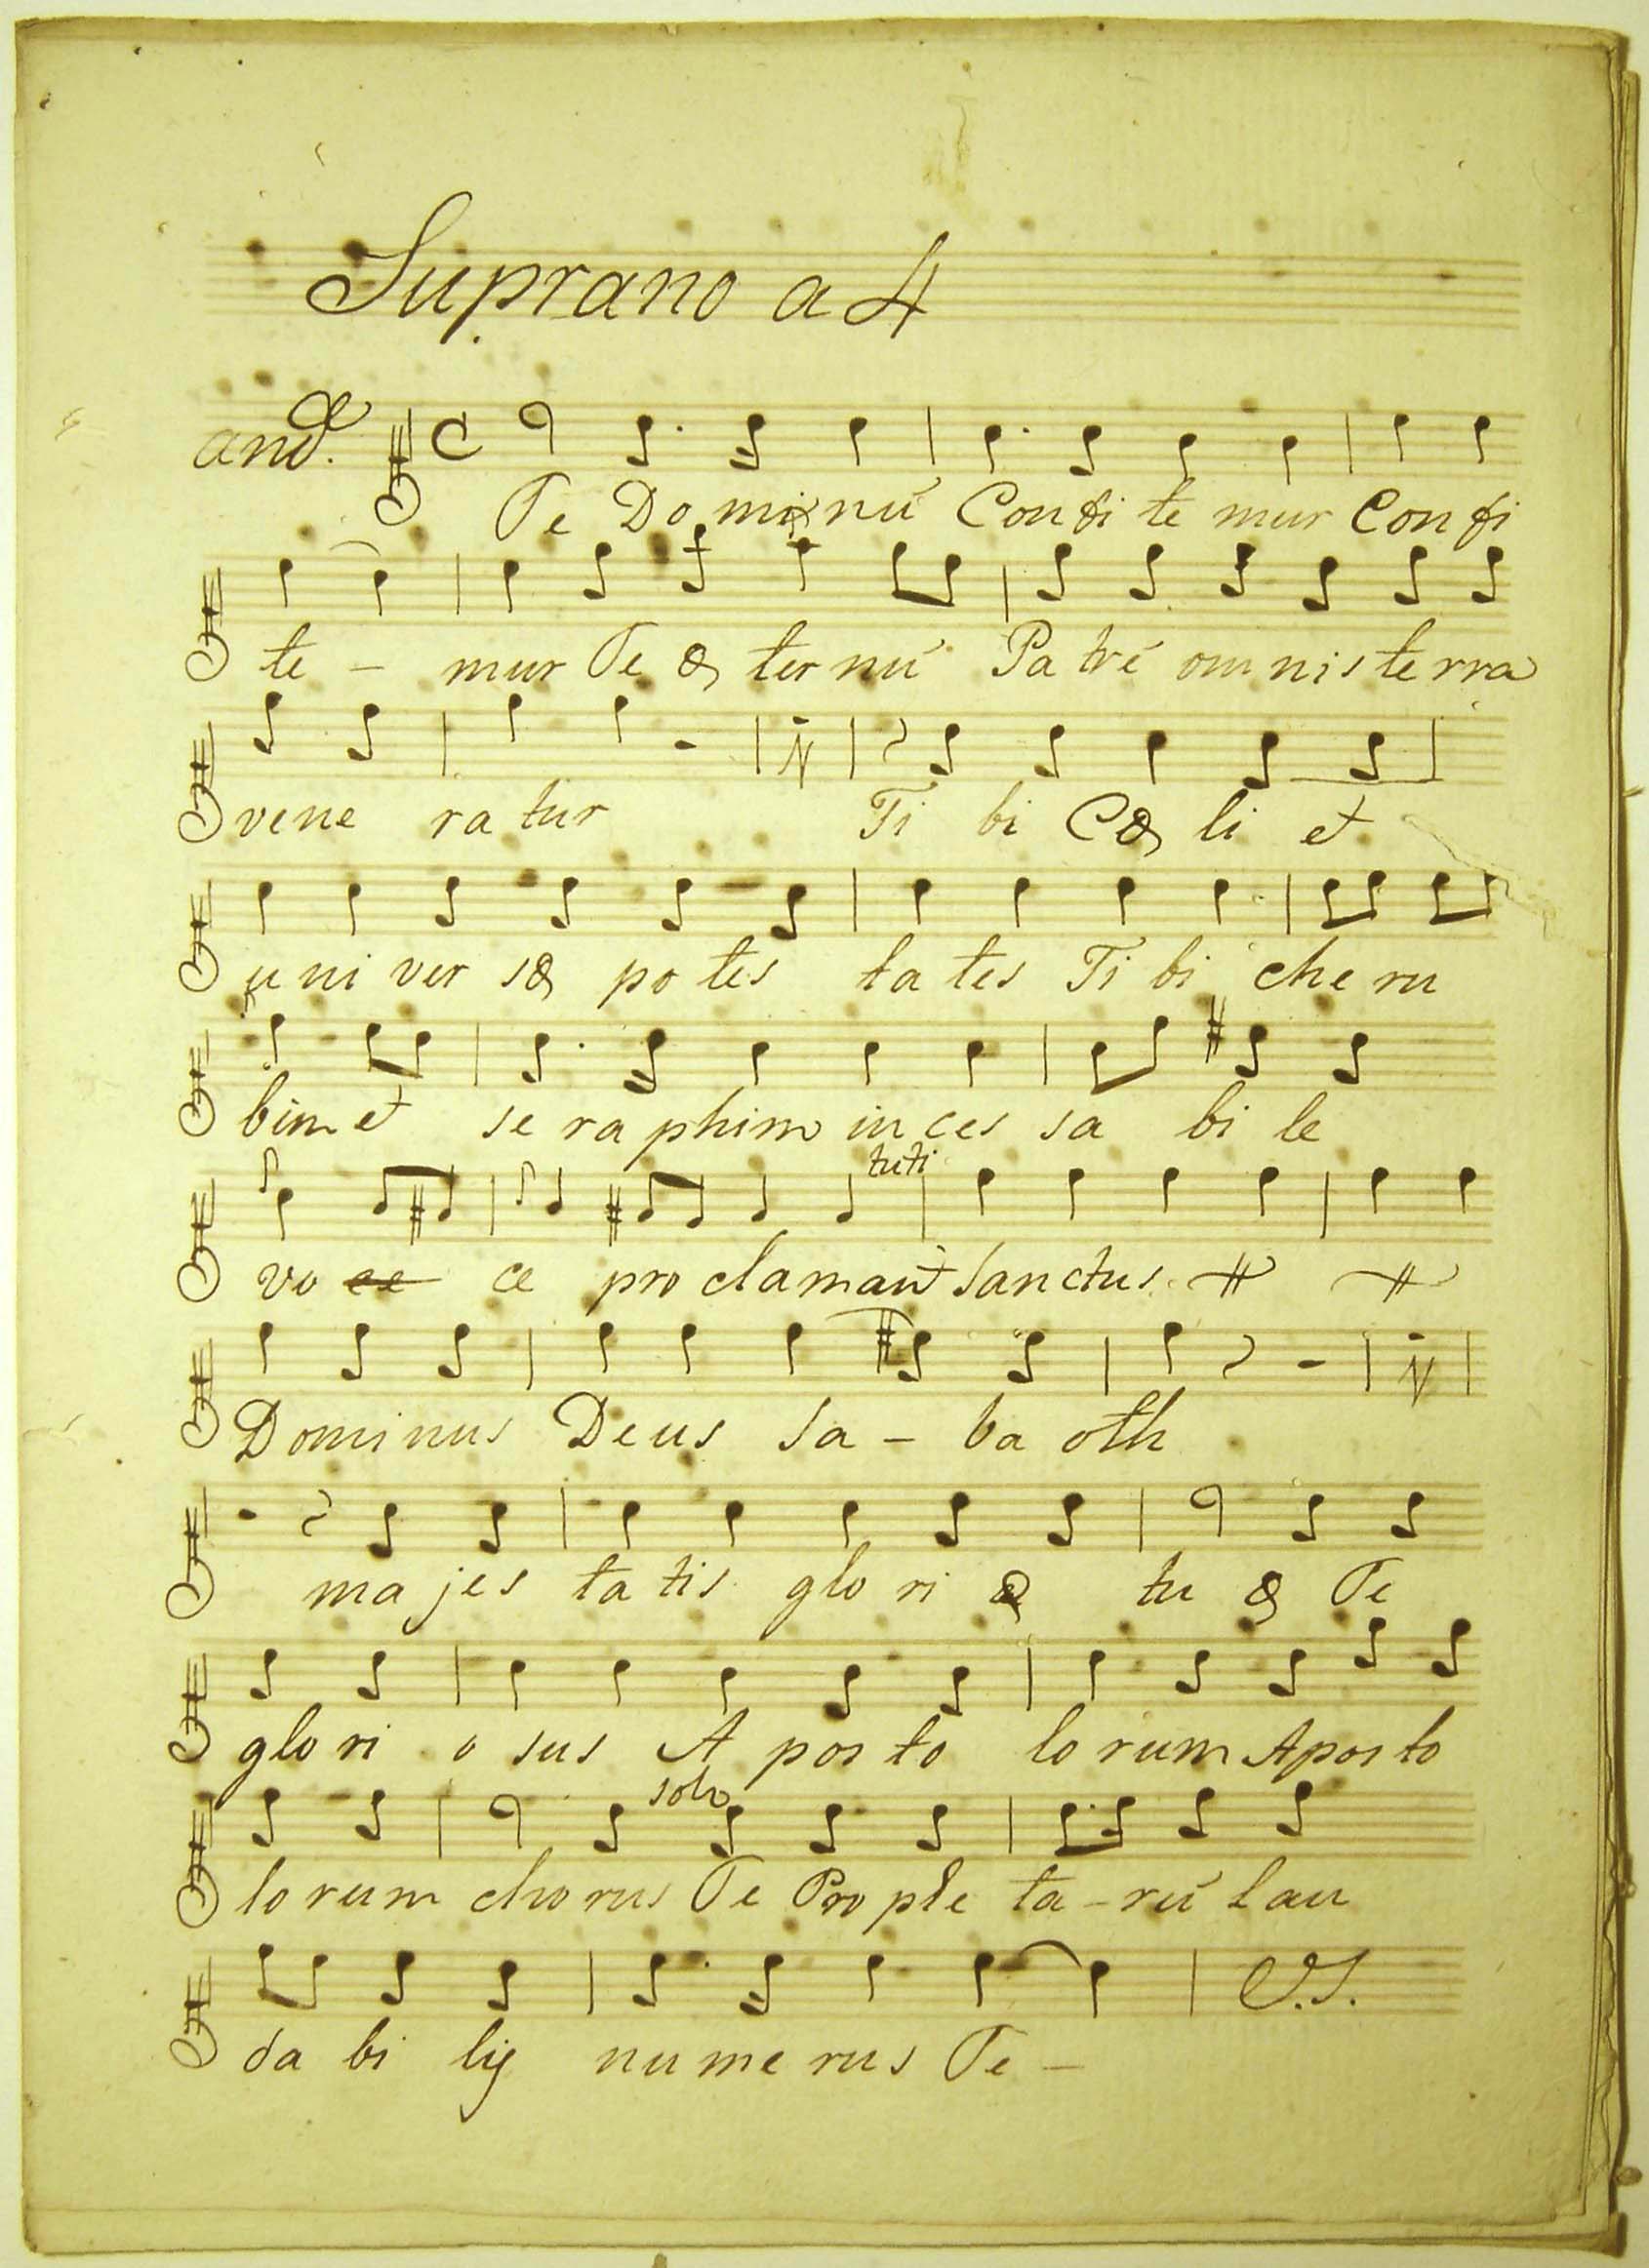 Suprano a 4
And.e
Te Do mi nú Con fi te mur Con fi
te - mur Te æ ter nú Pa tré om nis te rra
vene ra tur Ti bi Cœ li et
u ni ver sæ po tes ta tes Ti bi che ru
bim et se ra phim in ces sa bi le
tuti
vo ce ce pro claman't Sanctus
Dominus Deus Sa - ba oth
ma jes ta tis glo ri æ tu æ Te
glo ri o sus A pos to lo rum Apos to
solo
lo rum cho rus Te Pro phe ta - rú Lau
da bi lis nu me rus Te -
V.S.